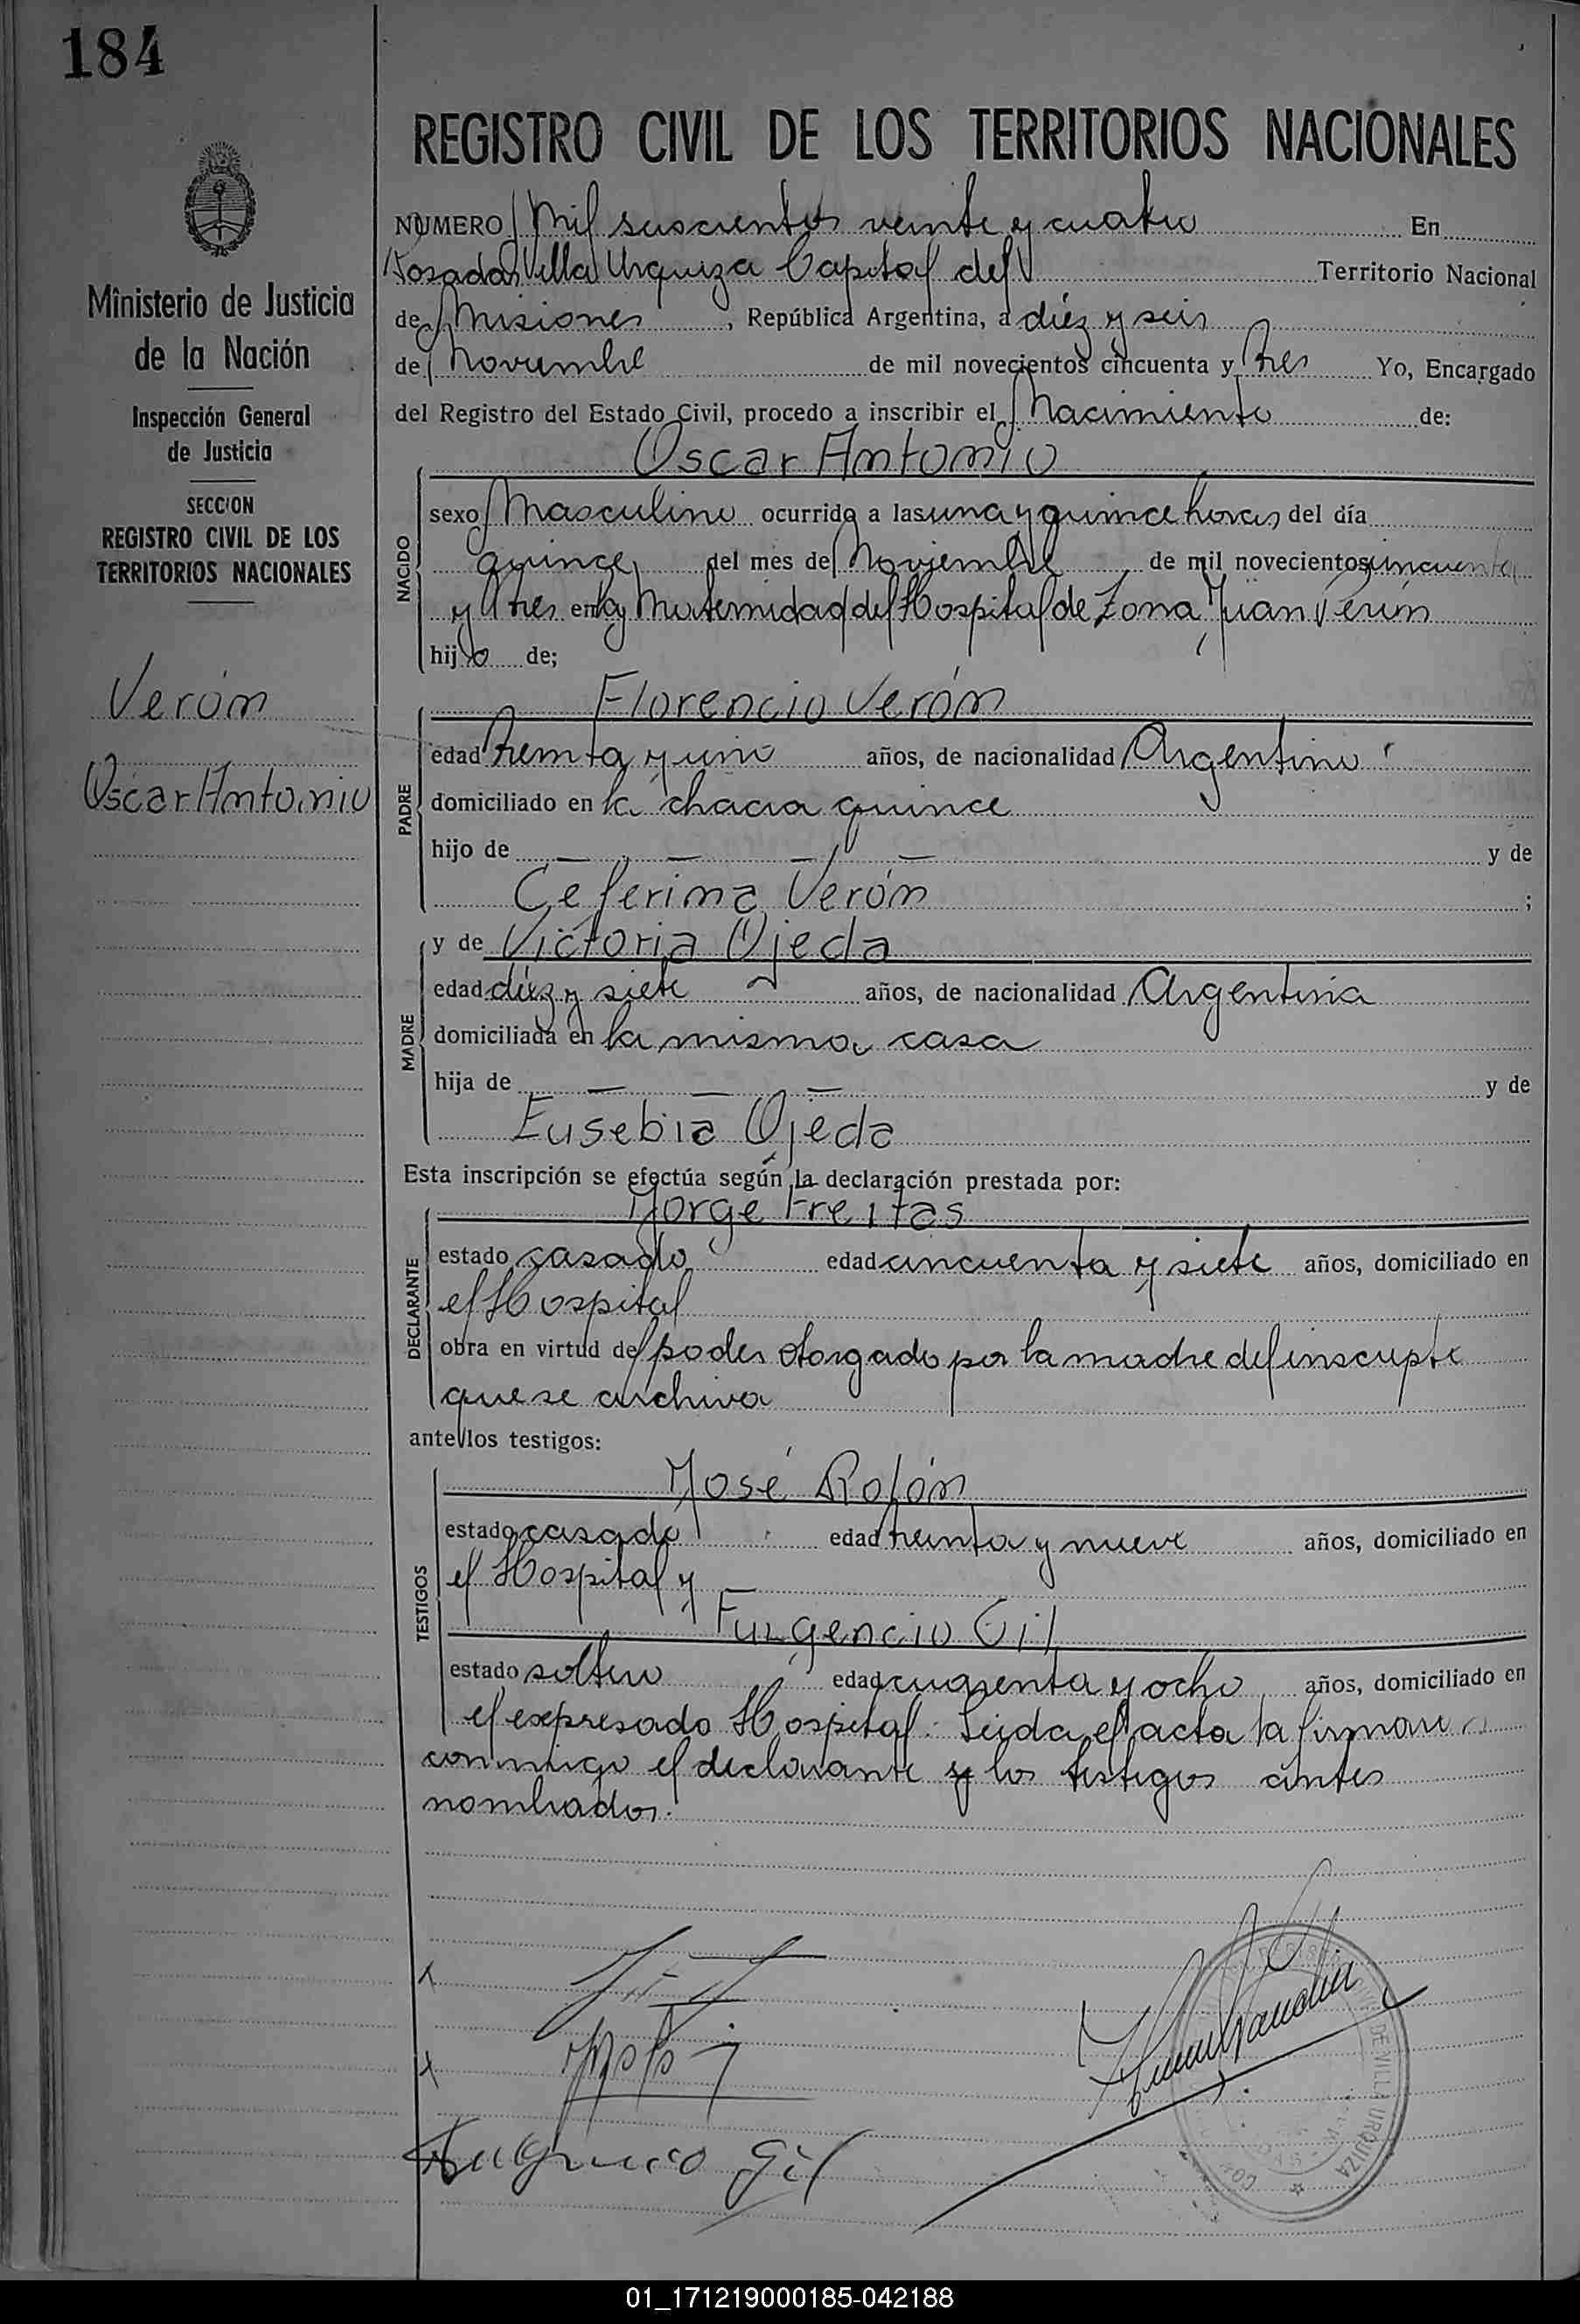 184
REGISTRO CIVIL DE LOS TERRITORIOS NACIONALES
Ministerio de Justicia
de la Nación
Inspección General
de Justicia
SECCION
REGISTRO CIVIL DE LOS
TERRITORIOS NACIONALES
Verón
Oscar Antonio
NUMERO Mil seiscientos veinte y cuatro En
Posadas Villa Urquiza Capital del Territorio Nacional
de Misiones, República Argentina, a diéz y seis
de Noviembre de mil novecientos cincuenta y tres Yo, Encargado
del Registro del Estado Civil, procedo a inscribir el Nacimiento de:
Oscar Antonio
NACIDO
sexo Masculino ocurrido a las una y quince horas del día
quince del mes de Noviembre de mil novecientos cincuenta
y tres en la Maternidad del Hospital de Zona
hijo de;
Florencio Verón
PADRE
edad treinta y uno años, de nacionalidad Argentino
domiciliado en la chacra quince
hijo de — — — — y de
Ceferina Verón ;
MADRE
y de Victoria Ojeda
edad diéz y siete años, de nacionalidad Argentina
domiciliada en la misma casa
hija de — — — y de
Eusebia Ojeda
Esta inscripción se efectúa según la declaración prestada por:
Jorge Freitas
DECLARANTE
estado casado edad cincuenta y siete años, domiciliado en
el Hospital
obra en virtud del poder otorgado por la madre del inscripto
que se archiva
ante los testigos:
José Rolón
TESTIGOS
estado casado edad treinta y nueve años, domiciliado en
el Hospital y
Fulgencio Gil
estado soltero edad cuarenta y ocho años, domiciliado en
el expresado Hospital. Leida el acta la firman
conmigo el declarante y los testigos antes
nombrados.
Fulgencio Gil
DE VILLA URQUIZA
01_171219000185-042188